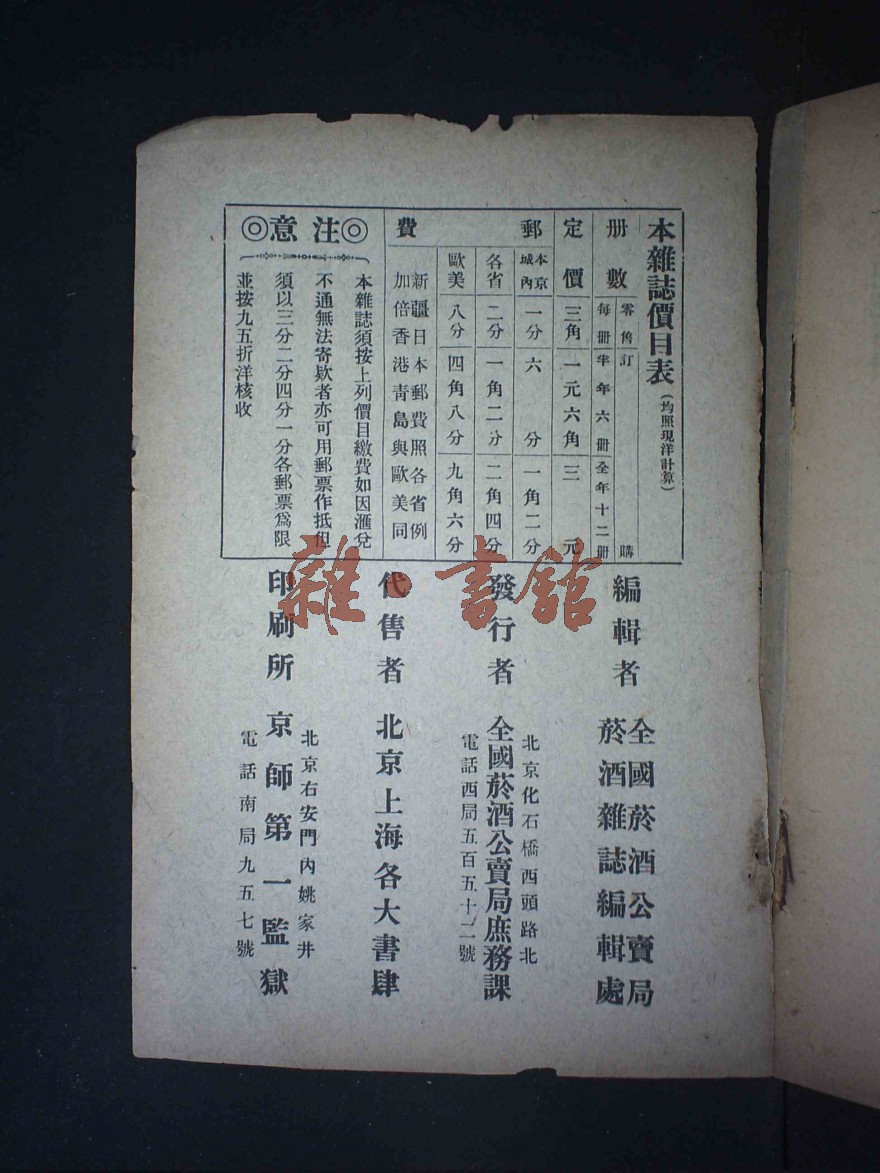 本雜誌價目表(均照現洋計算)
册數
零售
每册
訂購
半年六册
全年十二册
定價
三角
一元六角
三元
郵費
本京城內
一分
六分
一角二分
各省
二分
一角二分
二角四分
歐美
八分
四角八分
九角六分
新疆日本郵費照各省例
加倍香港靑島與歐美同
◎注意◎
本雜誌須按上列價目繳費如因滙兌
不通無法寄欵者亦可用郵票作抵但
須以三分二分四分一分各郵票爲限
並按九五折洋核收
編輯者
全國菸酒公賣局
菸酒雜誌編輯處
發行者
北京化石橋西頭路北
全國菸酒公賣局庶務課
電話西局五百五十二號
代售者
北京上海各大書肆
印刷所
北京右安門內姚家井
京師第一監獄
電話南局九五七號
雜·書館